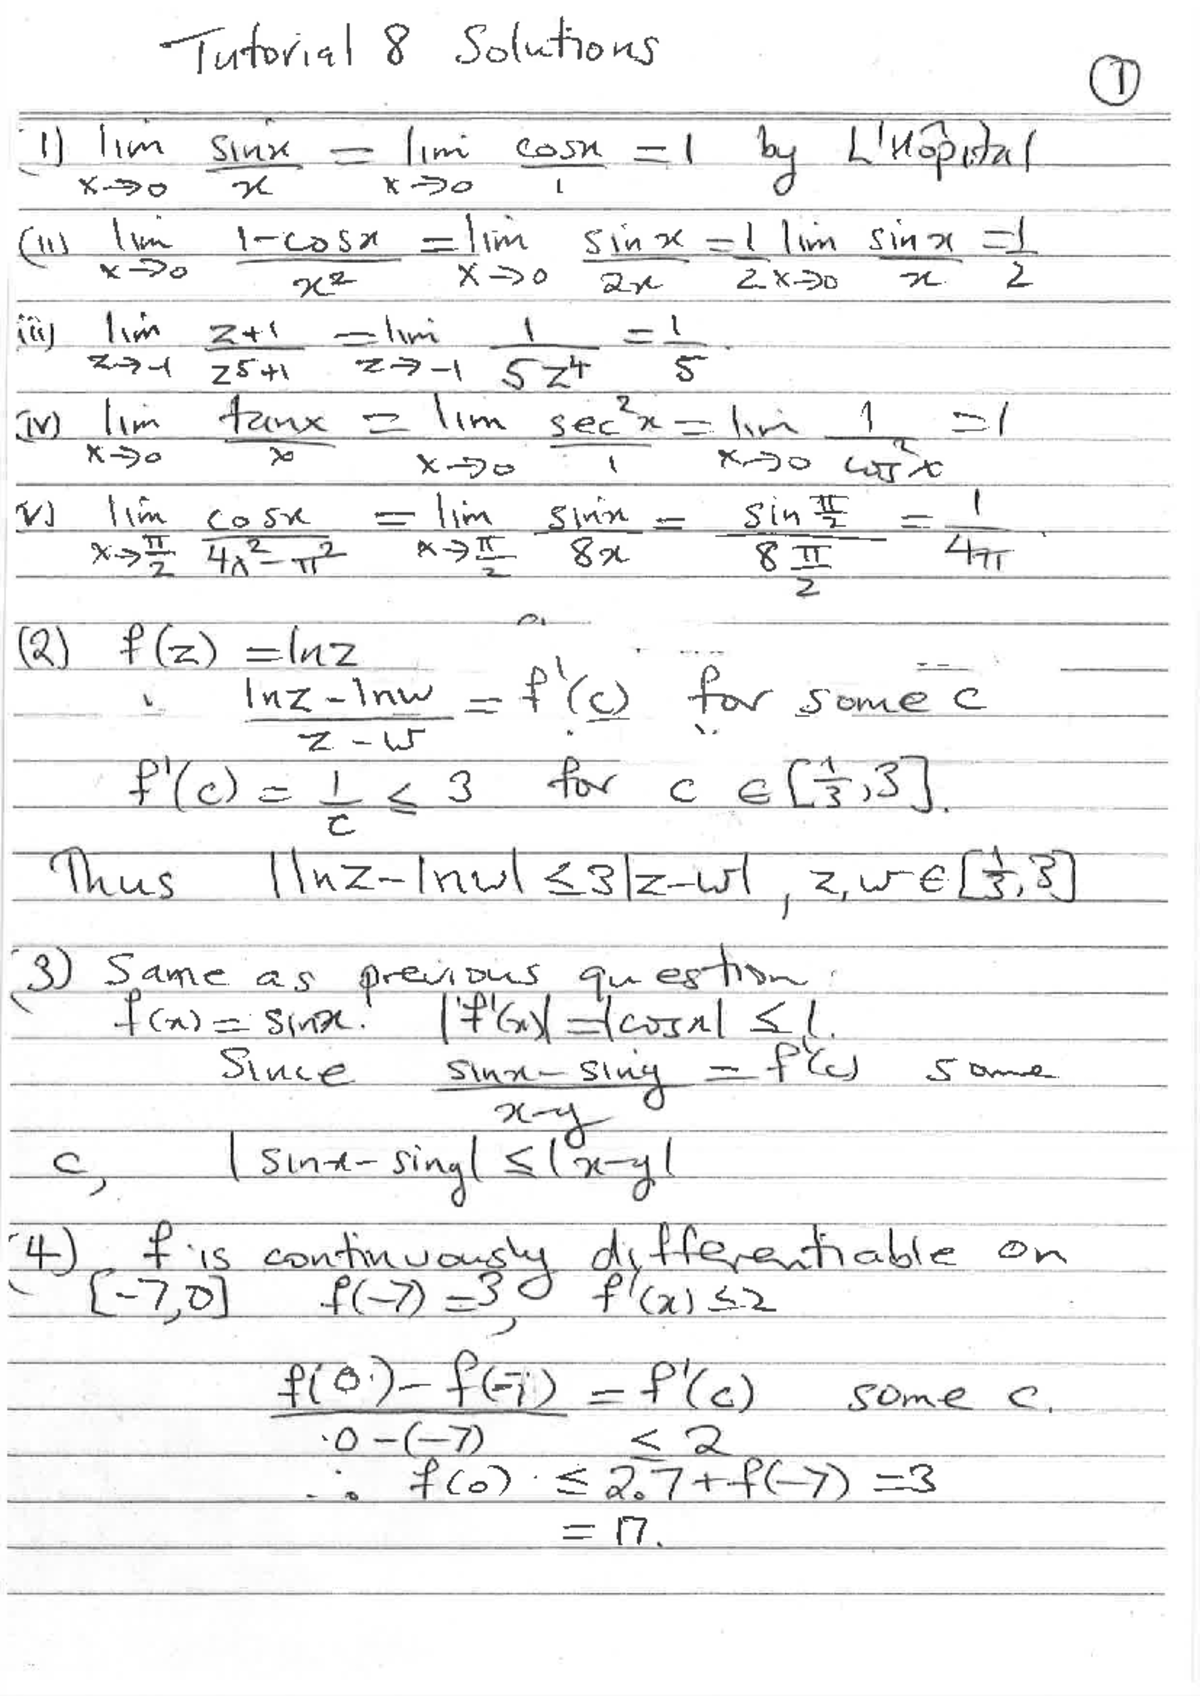 Tutorial 8 Solutions
①
1) lim x→0 sinx/x = lim x→0 cosx/1 = 1 by L'Hôpital
(ii) lim x→0 1-cosx/x² = lim x→0 sinx/2x = 1/2 lim x→0 sinx/x = 1/2
iii) lim z→-1 z+1/z⁵+1 = lim z→-1 1/5z⁴ = 1/5
(iv) lim x→0 tanx/x = lim x→0 sec²x/1 = lim x→0 1/cos²x = 1
v) lim x→π/2 cosx/4x²-π² = lim x→π/2 sinx/8x = sin π/2 / 8 π/2 = 1/4π
(2) f(z) = lnz
lnz - lnw / z-w = f'(c) for some c
f'(c) = 1/c ≤ 3 for c ∈ [1/3, 3].
Thus |lnz - lnw| ≤ 3|z-w|, z,w ∈ [1/3, 3]
(3) Same as previous question:
f(x) = sinx. |f'(x)| = |cosx| ≤ 1.
Since sinx - siny / x-y = f'(c) some
c, |sinx - siny| ≤ |x-y|
(4) f is continuously differentiable on
[-7,0] f(-7) = 3, f'(x) ≤ 2
f(0) - f(-7) / 0-(-7) = f'(c) some c.
≤ 2
∴ f(0) ≤ 2.7 + f(-7) = 3
= 17.